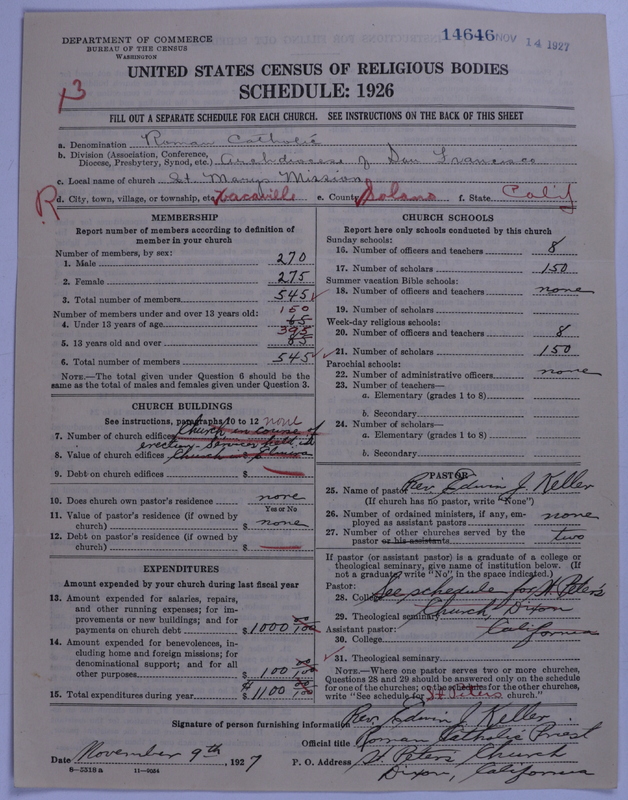 14646 NOV 14 1927
DEPARTMENT OF COMMERCE
BUREAU OF THE CENSUS
WASHINGTON
UNITED STATES CENSUS OF RELIGIOUS BODIES
SCHEDULE: 1926
13
FILL OUT A SEPARATE SCHEDULE FOR EACH CHURCH. SEE INSTRUCTIONS ON THE BACK OF THIS SHEET
a. Denomination Roman Catholic
b. Division (Association, Conference, Diocese, Presbytery, Synod, etc.) Archdiocese of San Francisco
c. Local name of church St. Marys Mission
R d. City, town, village, or township, etc. Vacaville e. County Solano f. State Calif
MEMBERSHIP
Report number of members according to definition of
member in your church
Number of members, by sex:
1. Male 270
2. Female 275
3. Total number of members 545
Number of members under and over 13 years old: 150
4. Under 13 years of age 65
395
5. 13 years old and over
6. Total number of members 545
NOTE.—The total given under Question 6 should be the
same as the total of males and females given under Question 3.
CHURCH BUILDINGS
See instructions, paragraphs 10 to 12 none
7. Number of church edifices Church in course of
erection. Services held in
8. Value of church edifices
9. Debt on church edifices $
10. Does church own pastor's residence none
Yes or No
11. Value of pastor's residence (if owned by
church) $ none
12. Debt on pastor's residence (if owned by
church) $
EXPENDITURES
Amount expended by your church during last fiscal year
13. Amount expended for salaries, repairs,
and other running expenses; for im-
provements or new buildings; and for
payments on church debt $ 1000 00/100
14. Amount expended for benevolences, in-
cluding home and foreign missions; for
denominational support; and for all
other purposes $ 100 00/100
15. Total expenditures during year $ 1100 00/100
CHURCH SCHOOLS
Report here only schools conducted by this church
Sunday schools:
16. Number of officers and teachers 8
17. Number of scholars 150
Summer vacation Bible schools:
18. Number of officers and teachers none
19. Number of scholars
Week-day religious schools:
20. Number of officers and teachers 8
21. Number of scholars 150
Parochial schools:
22. Number of administrative officers none
23. Number of teachers—
a. Elementary (grades 1 to 8)
b. Secondary
24. Number of scholars—
a. Elementary (grades 1 to 8)
b. Secondary
PASTOR
25. Name of pastor Rev. Edwin J. Keller
(If church has no pastor, write "None")
26. Number of ordained ministers, if any, em-
ployed as assistant pastors none
27. Number of other churches served by the
pastor or his assistants two
If pastor (or assistant pastor) is a graduate of a college or
theological seminary, give name of institution below. (If
not a graduate write "No", in the space indicated.)
Pastor:
28. College See schedule for St. Peter's
29. Theological seminary Church, Dixon
Assistant pastor: California
30. College
31. Theological seminary
NOTE.—Where one pastor serves two or more churches,
Questions 28 and 29 should be answered only on the schedule
for one of the churches; on the schedules for the other churches,
write "See schedule for St. Peters church."
Signature of person furnishing information Rev. Edwin J. Keller
Official title Roman Catholic Priest
Date November 9th, 1927 P. O. Address St. Peters Church
8—5318a 11—9054 Dixon, California